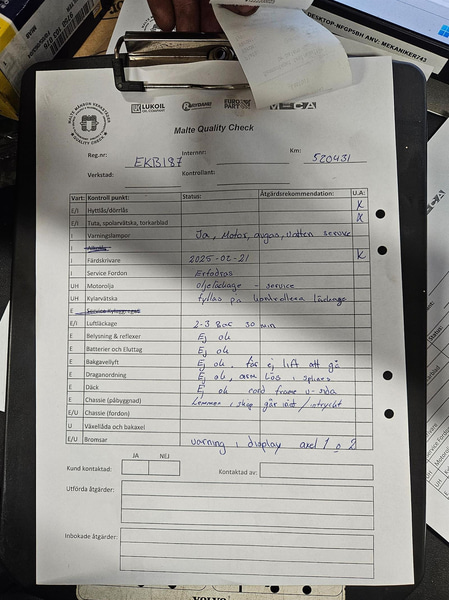 DESKTOP-NFCP5BH ANV: MEKANIKER743
MALTE MÅNSON VERKSTÄDER
QUALITY CHECK
LUKOIL
EURO PART
MECA
Malte Quality Check
Reg.nr: EKB187 Internnr: Km: 520431
Verkstad: Kontrollant:
Vart: Kontroll punkt: Status: Åtgärdsrekommendation: U.A:
E/I Hyttlås/dörrlås X
E/I Tuta, spolarvätska, torkarblad X
I Varningslampor Ja, Motor, avgas, vatten service
I
I Färdskrivare 2025-02-21 X
I Service Fordon Erfodras
UH Motorolja oljeläckage - service
UH Kylarvätska fyllas på kontrollera läckage
E
E/I Luftläckage 2-3 Bar 30 min
E Belysning & reflexer Ej ok
E Batterier och Eluttag Ej ok
E Bakgavellyft Ej ok, för ej lift att gå
E Draganordning Ej ok, arm lös i splines
E Däck Ej ok cord framme v-sida
E Chassie (påbyggnad) Lemmen i skåp går löst / intryckt
E/U Chassie (fordon)
U Växellåda och bakaxel
E/U Bromsar varning i display axel 1 o 2
JA NEJ
Kund kontaktad: Kontaktad av:
Utförda åtgärder:
Inbokade åtgärder:
VOLVO